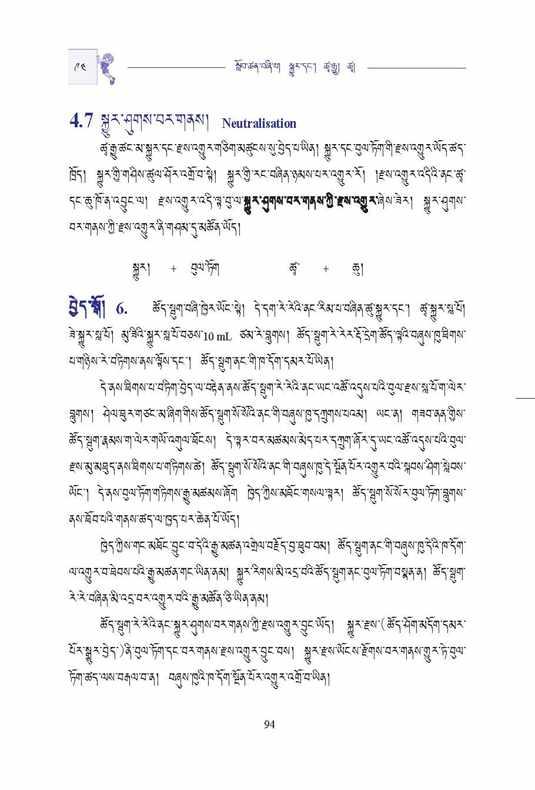 ༩༤ སློབ་ཚན་བཞི་པ། སྐྱུར་དང་། ཚྭ་རྒྱུ། ཚྭ།
4.7 སྐྱུར་ཤུགས་བར་གནས། Neutralisation
ཚྭ་རྒྱུ་ཚང་མ་སྐྱུར་དང་རྫས་འགྱུར་གཅིག་མཚུངས་སུ་བྱེད་པ་ཡིན། སྐྱུར་དང་བུལ་ཏོག་གི་རྫས་འགྱུར་ཡོད་ཚད་
ཁྲོད། སྐྱུར་གྱི་གཤིས་ཚུལ་ཤོར་འགྲོ་བ་སྟེ། སྐྱུར་གྱི་རང་བཞིན་ཉམས་པར་འགྱུར་རོ། །རྫས་འགྱུར་འདིའི་ནང་ཚྭ་
དང་ཆུ་ཁོ་ན་འབྱུང་ལ། རྫས་འགྱུར་འདི་ལྟ་བུ་ལ་སྐྱུར་ཤུགས་བར་གནས་ཀྱི་རྫས་འགྱུར་ཞེས་ཟེར། སྐྱུར་ཤུགས་
བར་གནས་ཀྱི་རྫས་འགྱུར་ནི་གཤམ་དུ་མཚོན་ཡོད།
སྐྱུར། + བུལ་ཏོག ཚྭ + ཆུ།
བྱེད་སྒོ། 6. ཚོད་སྦུག་བཞི་ཁྱེར་ཡོང་སྟེ། དེ་དག་རེ་རེའི་ནང་རིམ་པ་བཞིན་ཚྭ་སྐྱུར་དང་། ཚྭ་སྐྱུར་སླ་པོ།
ཟེ་སྐྱུར་སླ་པོ། མུ་ཟིའི་སྐྱུར་སླ་པོ་བཅས་10 mL ཙམ་རེ་བླུགས། ཚོད་སྦུག་རེ་རེར་རྡོ་དྲེག་ཚོད་ལྟའི་བཞུས་ཁུ་ཐིགས་
པ་གཉིས་རེ་བཏིགས་ནས་ལྟོས་དང་། ཚོད་སྦུག་ནང་གི་ཁ་དོག་དམར་པོ་ཡིན།
དེ་ནས་ཐིགས་པ་བཏིག་བྱེད་ལ་བརྟེན་ནས་ཚོད་སྦུག་རེ་རེའི་ནང་ཡང་འཚོ་འདུས་པའི་བུལ་རྫས་སླ་པོ་ག་ལེར་
བླུགས། ཤེལ་ཟུར་གཙང་མ་ཞིག་གིས་ཚོད་སྦུག་སོ་སོའི་ནང་གི་བཞུས་ཁུ་དཀྲུགས་པའམ། ཡང་ན། གཟབ་ནན་གྱིས་
ཚོད་སྦུག་རྣམས་ག་ལེར་གཡོ་འགུལ་ཐོངས། དེ་ལྟར་བར་མཚམས་མེད་པར་དཀྲུག་ཞོར་དུ་ཡང་འཚོ་འདུས་པའི་བུལ་
རྫས་མུ་མཐུད་ནས་ཐིགས་པ་གཏིགས་ཚེ། ཚོད་སྦུག་སོ་སོའི་ནང་གི་བཞུས་ཁུ་དེ་སྔོན་པོར་འགྱུར་བའི་སྐབས་ཤིག་སླེབས་
ཡོང་། དེ་ནས་བུལ་ཏོག་གཏིགས་རྒྱུ་མཚམས་ཞོག ཁྱེད་ཀྱིས་མཐོང་གསལ་ལྟར། ཚོད་སྦུག་སོ་སོར་བུལ་ཏོག་བླུགས་
ནས་ཐོབ་པའི་གནས་ཚད་ལ་ཁྱད་པར་ཆེན་པོ་ཡོད།
ཁྱེད་ཀྱིས་གང་མཐོང་བྱུང་བ་དེའི་རྒྱུ་མཚན་འགྲེལ་བརྗོད་བྱ་ཐུབ་བམ། ཚོད་སྦུག་ནང་གི་བཞུས་ཁུ་དེའི་ཁ་དོག་
ལ་འགྱུར་བ་ཐེབས་པའི་རྒྱུ་མཚན་གང་ཡིན་ནམ། སྐྱུར་རིགས་མི་འདྲ་བའི་ཚོད་སྦུག་ནང་བུལ་ཏོག་བསྣན་ན། ཚོད་སྦུག་
རེ་རེ་བཞིན་མི་འདྲ་བར་འགྱུར་བའི་རྒྱུ་མཚན་ཅི་ཡིན་ནམ།
ཚོད་སྦུག་རེ་རེའི་ནང་སྐྱུར་ཤུགས་བར་གནས་ཀྱི་རྫས་འགྱུར་བྱུང་ཡོད། སྐྱུར་རྫས་(ཚོད་ཤོག་མདོག་དམར་
པོར་སྒྱུར་བྱེད་)ནི་བུལ་ཏོག་དང་བར་གནས་རྫས་འགྱུར་བྱུང་བས། སྐྱུར་རྫས་ཡོངས་རྫོགས་བར་གནས་གྱུར་ཏེ་བུལ་
ཏོག་ཚད་ལས་བརྒལ་བ་ན། བཞུས་ཁུའི་ཁ་དོག་སྔོན་པོར་འགྱུར་འགྲོ་བ་ཡིན།
94